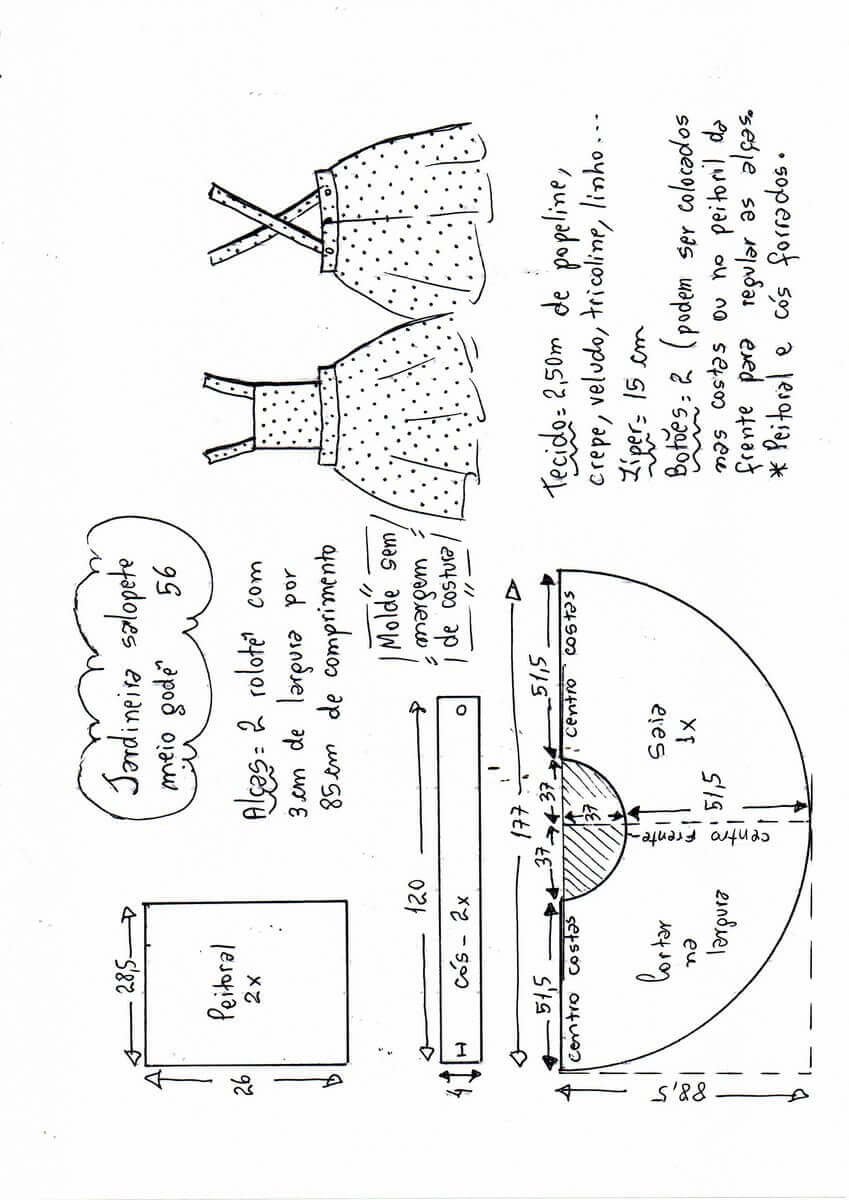 Jardineira salopete
meio godê 56
Alças = 2 rolotê com
3 cm de largura por
85 cm de comprimento
Molde sem
margem
de costura
Peitoral
2x
28,5
26
120
H
cós - 2x
4
177
51,5
37
37
51,5
centro costas
centro costas
37
51,5
centro frente
Saia
1x
Cortar
na
largura
88,5
Tecido = 2,50m de popeline,
crepe, veludo, tricoline, linho...
Zíper = 15 cm
Botões = 2 (podem ser colocados
nas costas ou no peitoril da
frente para regular as alças.
* Peitoral e cós forrados.